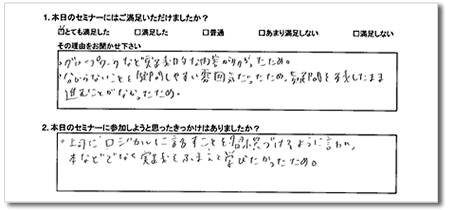 1.本日のセミナーにはご満足いただけましたか？
☑とても満足した □満足した □普通 □あまり満足しない □満足しない
その理由をお聞かせ下さい
・グループワークなど実践的な内容が多かったため。
・分からないことを質問しやすい雰囲気だったため、疑問を残したまま
進むことがなかったため。
2.本日のセミナーに参加しようと思ったきっかけはありましたか？
・上司にロジカルに話すことを習慣づけるように言われ、
本などでなく実践をふまえて学びたかったため。